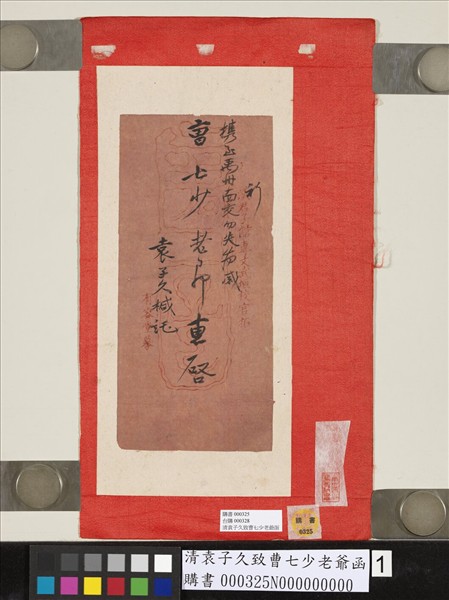 祈
携至禹州面交勿失為感
曹七少老爺惠啓
袁子久椷託
購書 000325
台購 000328
清袁子久致曹七少老爺函
購書
0325
清袁子久致曹七少老爺函
購書 000325N000000000
1